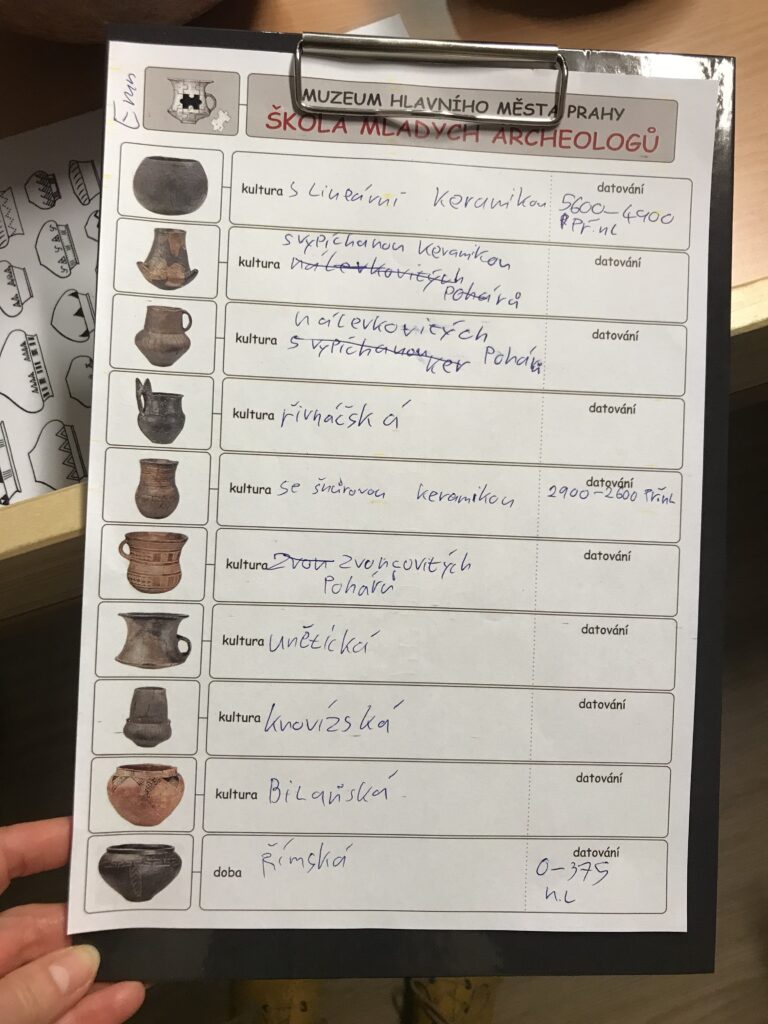 Emn
MUZEUM HLAVNÍHO MĚSTA PRAHY
ŠKOLA MLADÝCH ARCHEOLOGŮ
kultura s Lineární keramikou
datování
5600-4900
Př.nL
kultura s vypíchanou keramikou
nálevkovitých
Pohárů
datování
kultura nálevkovitých
s vypíchanou ker Pohárů
datování
kultura řivnáčská
datování
kultura se šňůrovou keramikou
datování
2900-2600 Př.nL
kultura Zvon zvoncovitých
Pohárů
datování
kultura unětická
datování
kultura knovízská
datování
kultura BiLaňská
datování
doba římská
datování
0-375
n.L